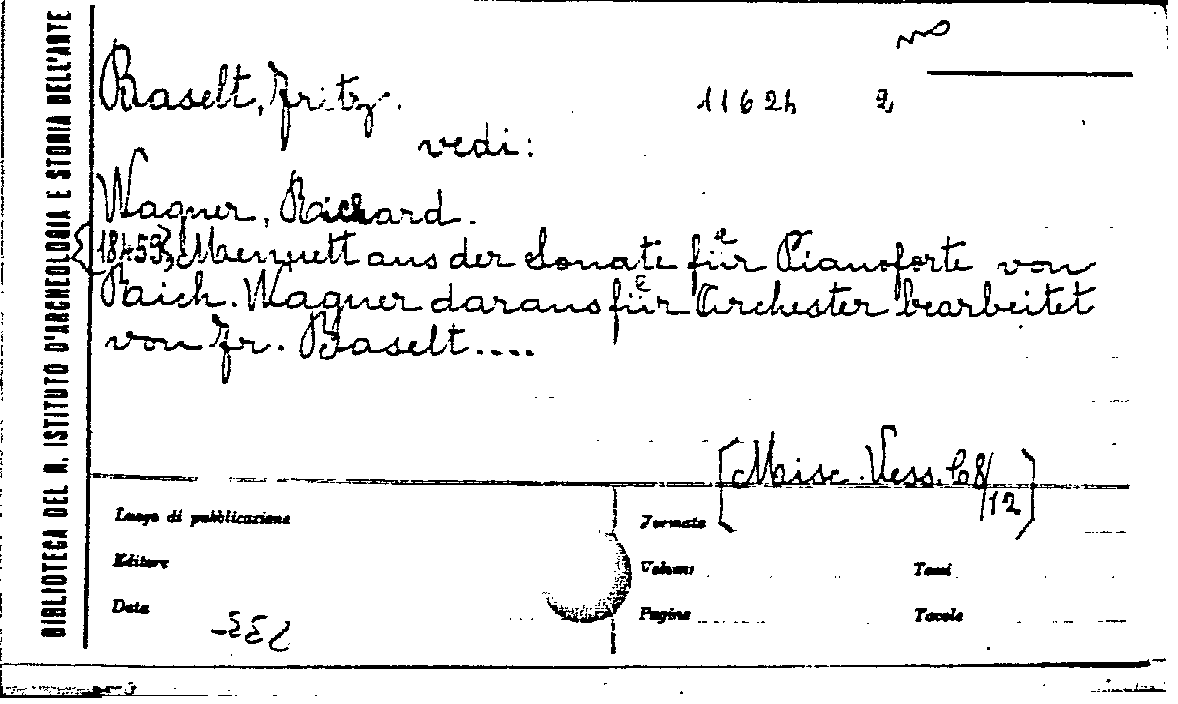 BIBLIOTECA DEL R. ISTITUTO D'ARCHEOLOGIA E STORIA DELL'ARTE
Baselt, Fritz.
vedi:
Wagner, Richard.
Menuett aus der Sonate für Pianoforte von
Rich. Wagner daraus für Orchester bearbeitet
von Fr. Baselt....
[Misc. Vess. C8/12]
Luogo di pubblicazione
Formato
Editore
Volumi
Tomi
Data
Pagine
Tavole